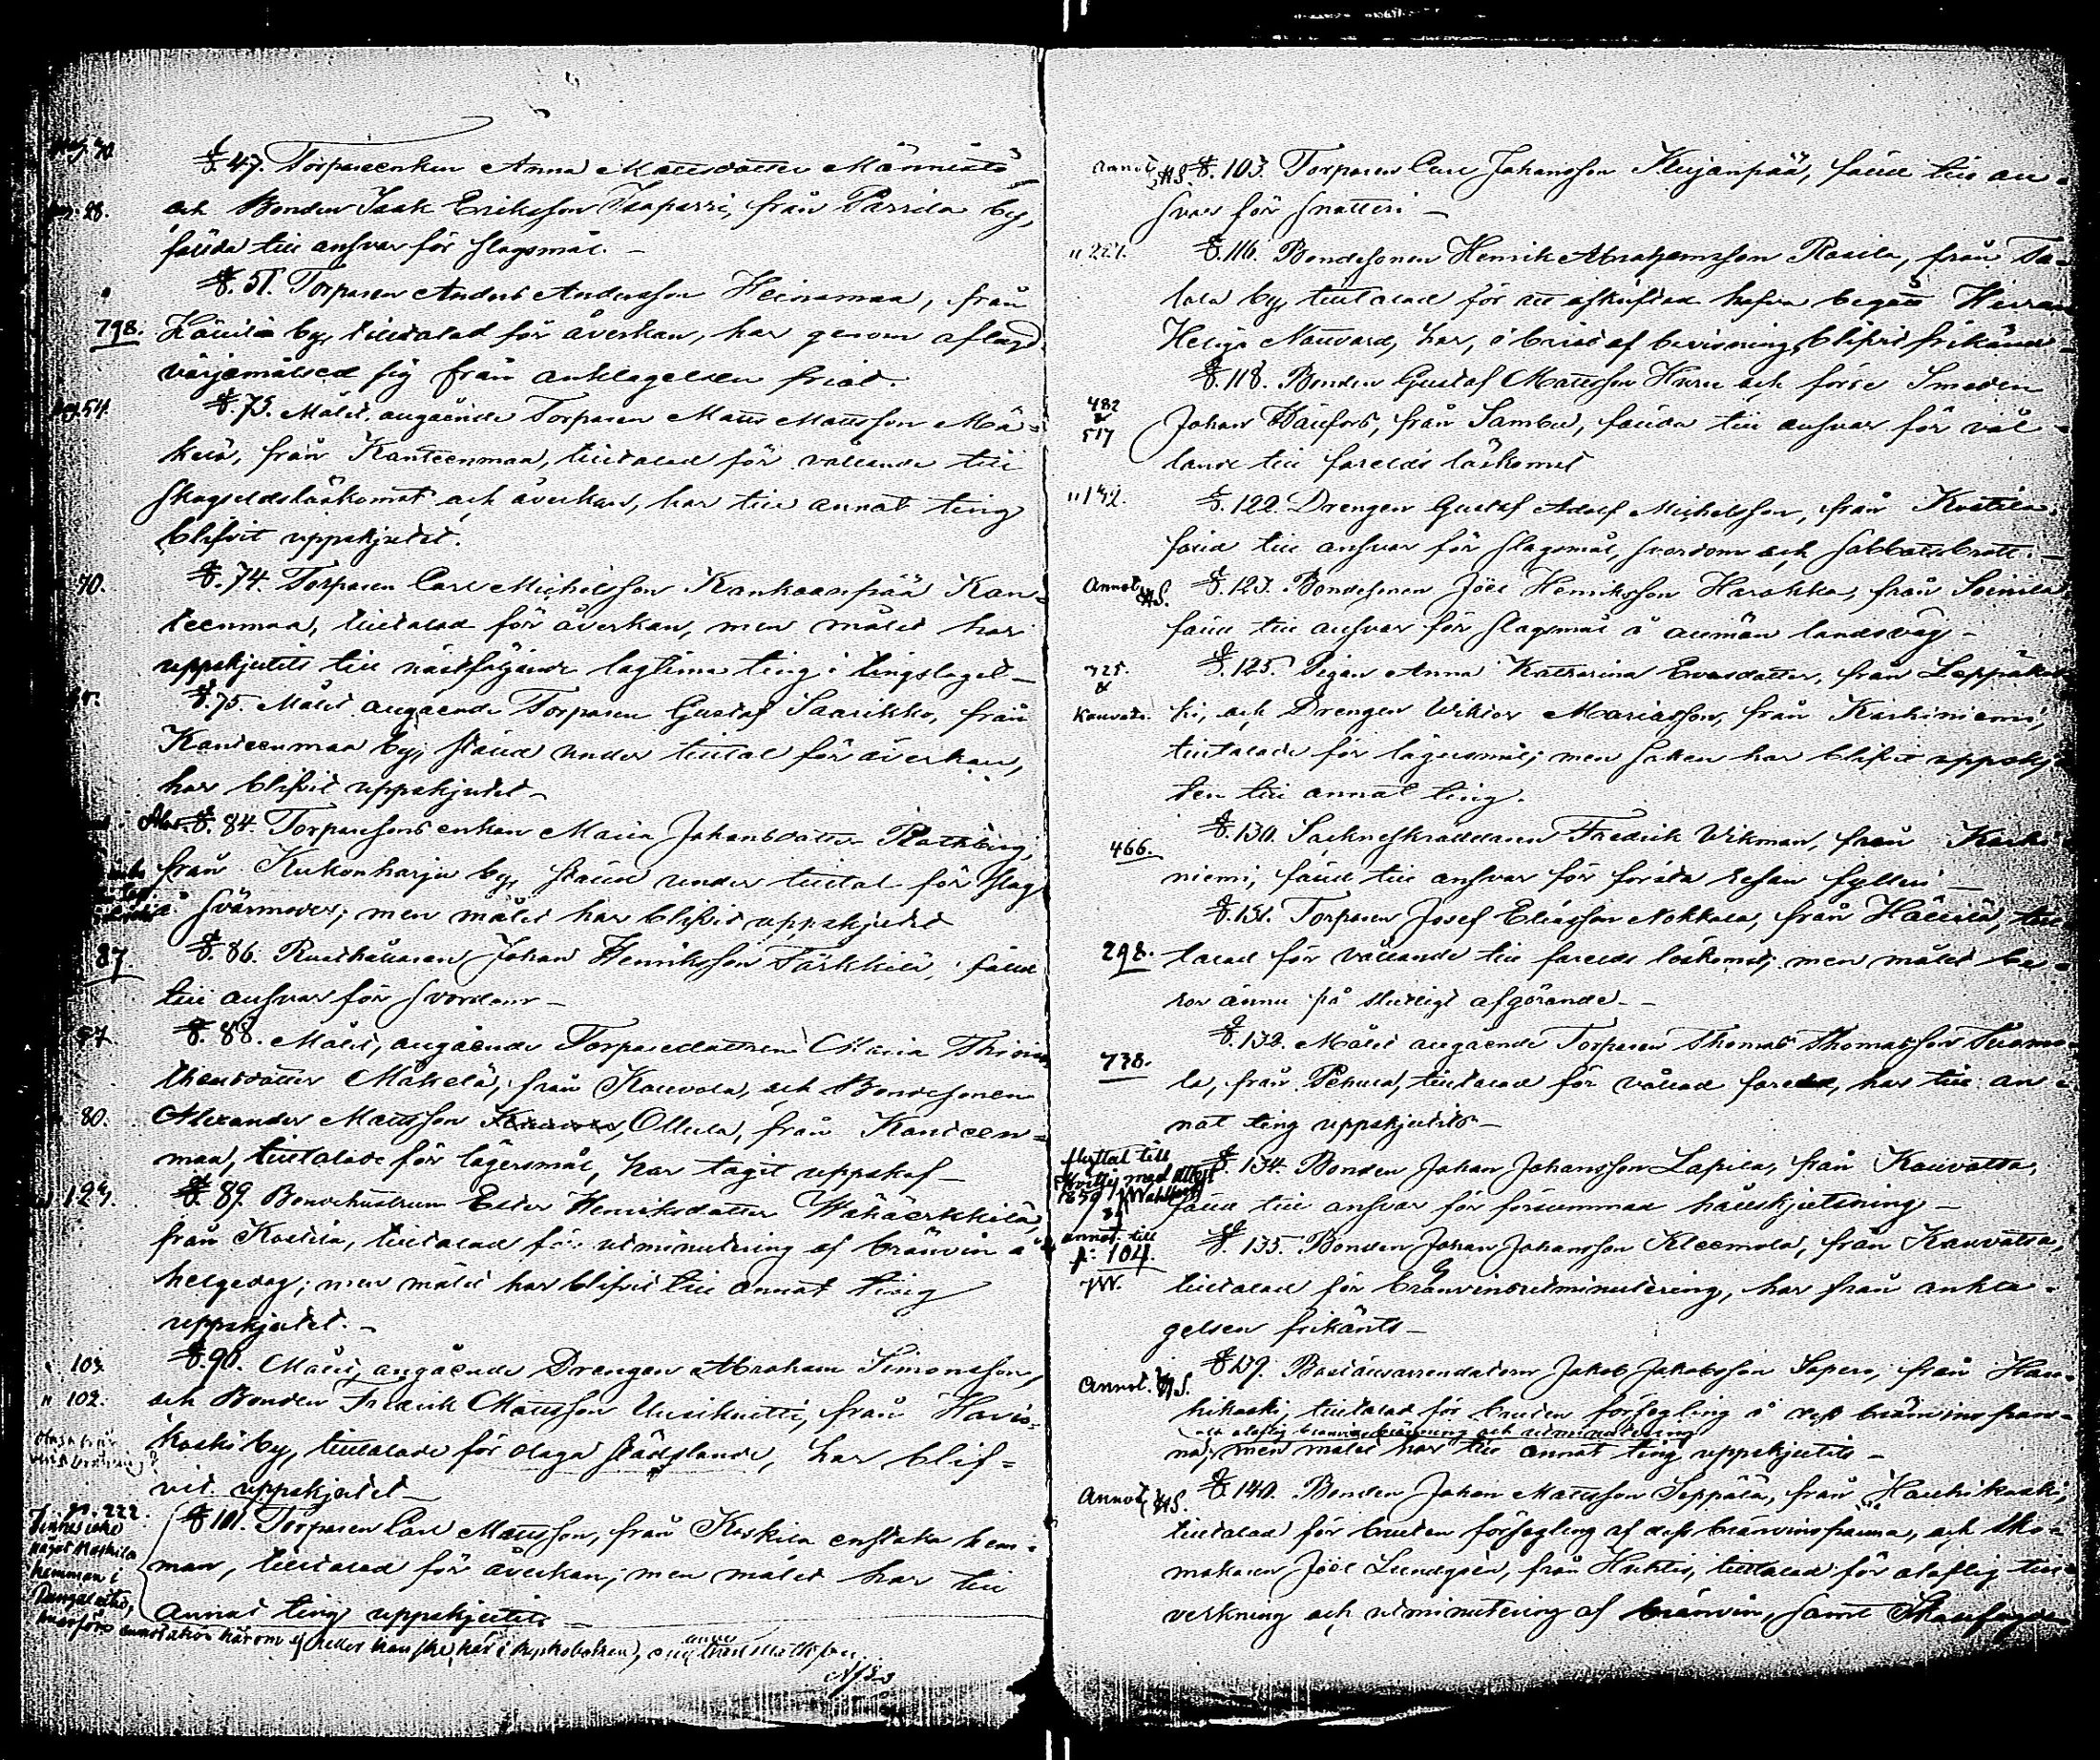 §. 47. Torpareenkan Anna Mattsdotter Männistö
och Bonden Isak Eriksson Isoparri, från Parrila by,
fällda till ansvar för slagsmål. –
§. 51. Torparen Anders Andersson Heinamaa, från
798. Höuila by, tilltalad för åverkan, har genom aflagd
värjemålsed sig från anklagelsen friat.
pag. 54. §. 73. Målet angående Torparen Matts Mattsson Mä-
kelä, från Kanteenmaa, tilltalad för vållande till
skogseldslöskomst och åverkan, har till annat ting
blifvit uppskjutet.
70. §. 74. Torparen Carl Michelsson Kankaanpää Kan-
teenmaa, tilltalad för åverkan, men målet har
uppskjutits till nästföljande lagtima ting i tingslaget –
§. 75. Målet angående Torparen Gustaf Saarikko, från
Kanteenmaa by, ställd under tilltal för åverkan,
har blifvit uppskjutet –
§. 84. Torparesons enkan Maria Johansdotter Rothberg,
från Kukonharju by, ställd under tilltal för slag
å svärmoder; men målet har blifvit uppskjutet
87. §. 86. Rusthållaren Johan Henriksson Tärkkilä, fälld
till ansvar för svordom –
§. 88. Målet, angående Torparedottren Maria Thimo-
theusdotter Mäkelä, från Kouvola, och Bondesonen
80. Alexander Mattsson Ollula, från Kanteen-
maa, tilltalade för lägersmål, har tagit uppskof –
§. 89. Bondehustrun Ester Henriksdotter Wähäerkkilä,
från Kostila, tilltalad för utminutering af bränvin å
helgedag; men målet har blifvit till annat ting
uppskjutet. –
103. §. 90. Målet, angående Drengen Abraham Simonsson,
" 102. och Bonden Fredrik Mattsson Uusiknitti, från Havis-
koski by, tilltalade för olaga städslande, har blif-
vit uppskjutet –
p. 222. § 101. Torparen Carl Mattsson, från Koskila enstaka hem-
finnes icke
något Koskila
man, tilltalad för åverkan; men målet har till
hemman i
annat ting uppskjutits –
Annot. §. 103. Torparen Carl Johansson Kujanpää, fälld till an-
svar för snatteri –
" 227. §. 116. Bondesonen Henrik Abrahamsson Rosila, från Ta-
lala by, tilltalad för att oskriftad hafva begått Herrans
Heliga Nattvard, har, i brist af bevisning, blifvit frikänd –
§. 118. Bonden Gustaf Mattsson Huru och förre Smeden
482
&
517
Johan Hällfors, från Sambu, fällda till ansvar för vål-
lande till farelds löskomst
§. 122. Drengen Gustaf Adolf Michelsson, från Kostila,
fälld till ansvar för slagsmål, svordom och sabbatsbrott. –
Annot. §. 123. Bondesonen Joël Henriksson Harakka, från Soinila,
fälld till ansvar för slagsmål å allmän landsväg –
725.
&
Kauvats.
§. 125. Pigan Anna Katharina Evasdotter, från Leppäkos-
ki, och Drengen Wiktor Mariasson, från Karhiniemi,
tilltalade för lägersmål; men saken har blifvit uppskju-
ten till annat ting.
466. §. 130. Socknskräddaren Fredrik Wikman, från Karhi-
niemi, fälld till ansvar för första resan fylleri –
§. 131. Torparen Josef Eliasson Nokkala, från Höuilä, till-
298. talad för vållande till farelds löskomst; men målet be-
ror ännu på slutligt afgörande. –
§. 132. Målet angående Torparen Thomas Thomasson Tuomo-
738. la, från Pehula, tilltalad för vållad fareld, har till an-
nat ting uppskjutits –
flyttat till
med attest
1859
§. 134. Bonden Johan Johansson Lapila, från Kauvatsa,
fälld till ansvar för försummad hållskjutsning –
annot. till
p: 104.
§. 135. Bonden Johan Johansson Kleemola, från Kauvatsa,
tilltalad för bränvinsutminutering, har från ankla-
gelsen frikänts –
Annot. §. 139. Bostallsarrendatorn Jakob Jakobsson Sapero, från Hau-
hikoski, tilltalad för bruten försegling å dess bränvinspan-
och olaflig bränvinsbränning och utminutering
na; men målet har till annat ting uppskjutits –
Annot. §. 140. Bonden Johan Mattsson Seppälä, från Hauhikoski,
tilltalad för bruten försegling af dess bränvinspanna, och Sko-
makaren Joël Lundgrén, från Huhti, tilltalad för olaflig till-
verkning och utminutering af bränvin, samt Skallfogden